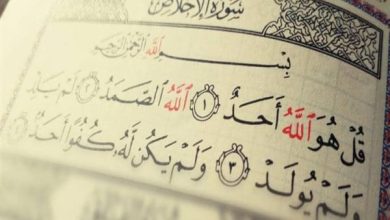 سُورَةُ الإِخْلَاصِ
بِسْمِ ٱللَّهِ ٱلرَّحْمَٰنِ ٱلرَّحِيمِ
قُلْ هُوَ ٱللَّهُ أَحَدٌ ١ ٱللَّهُ ٱلصَّمَدُ ٢ لَمْ يَلِدْ
وَلَمْ يُولَدْ ٣ وَلَمْ يَكُن لَّهُۥ كُفُوًا أَحَدٌۢ